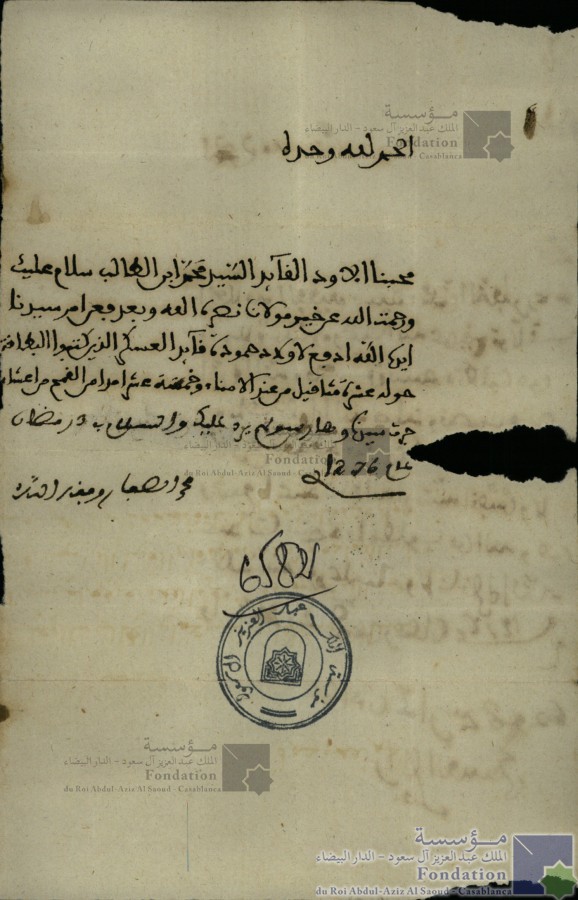 مؤسسة
الملك عبد العزيز آل سعود - الدار البيضاء
Fondation
Casablanca
الحمد لله وحده
محبنا الاود القائد السيد محمد ابن الطالب سلام عليك
ورحمت الله عن خير مولانا نصره الله وبعد فعن امر سيدنا
ايده الله ادفع لاولاد حمودة قائد العسكر الذين
عشرة مثاقيل من عند الامناء وخمسة عشر امدا من القمح من اعشار
يرد عليك والسلام في رمضان
مؤسسة
الملك عبد العزيز آل سعود - الدار البيضاء
Fondation
du Roi Abdul-Aziz Al Saoud - Casablanca
عام 1276
محمد الصفار وفقه الله
6582
مؤسسة الملك عبد العزيز آل سعود
مؤسسة
الملك عبد العزيز آل سعود - الدار البيضاء
Fondation
du Roi Abdul-Aziz Al Saoud - Casablanca
مؤسسة
الملك عبد العزيز آل سعود - الدار البيضاء
Fondation
du Roi Abdul-Aziz Al Saoud - Casablanca